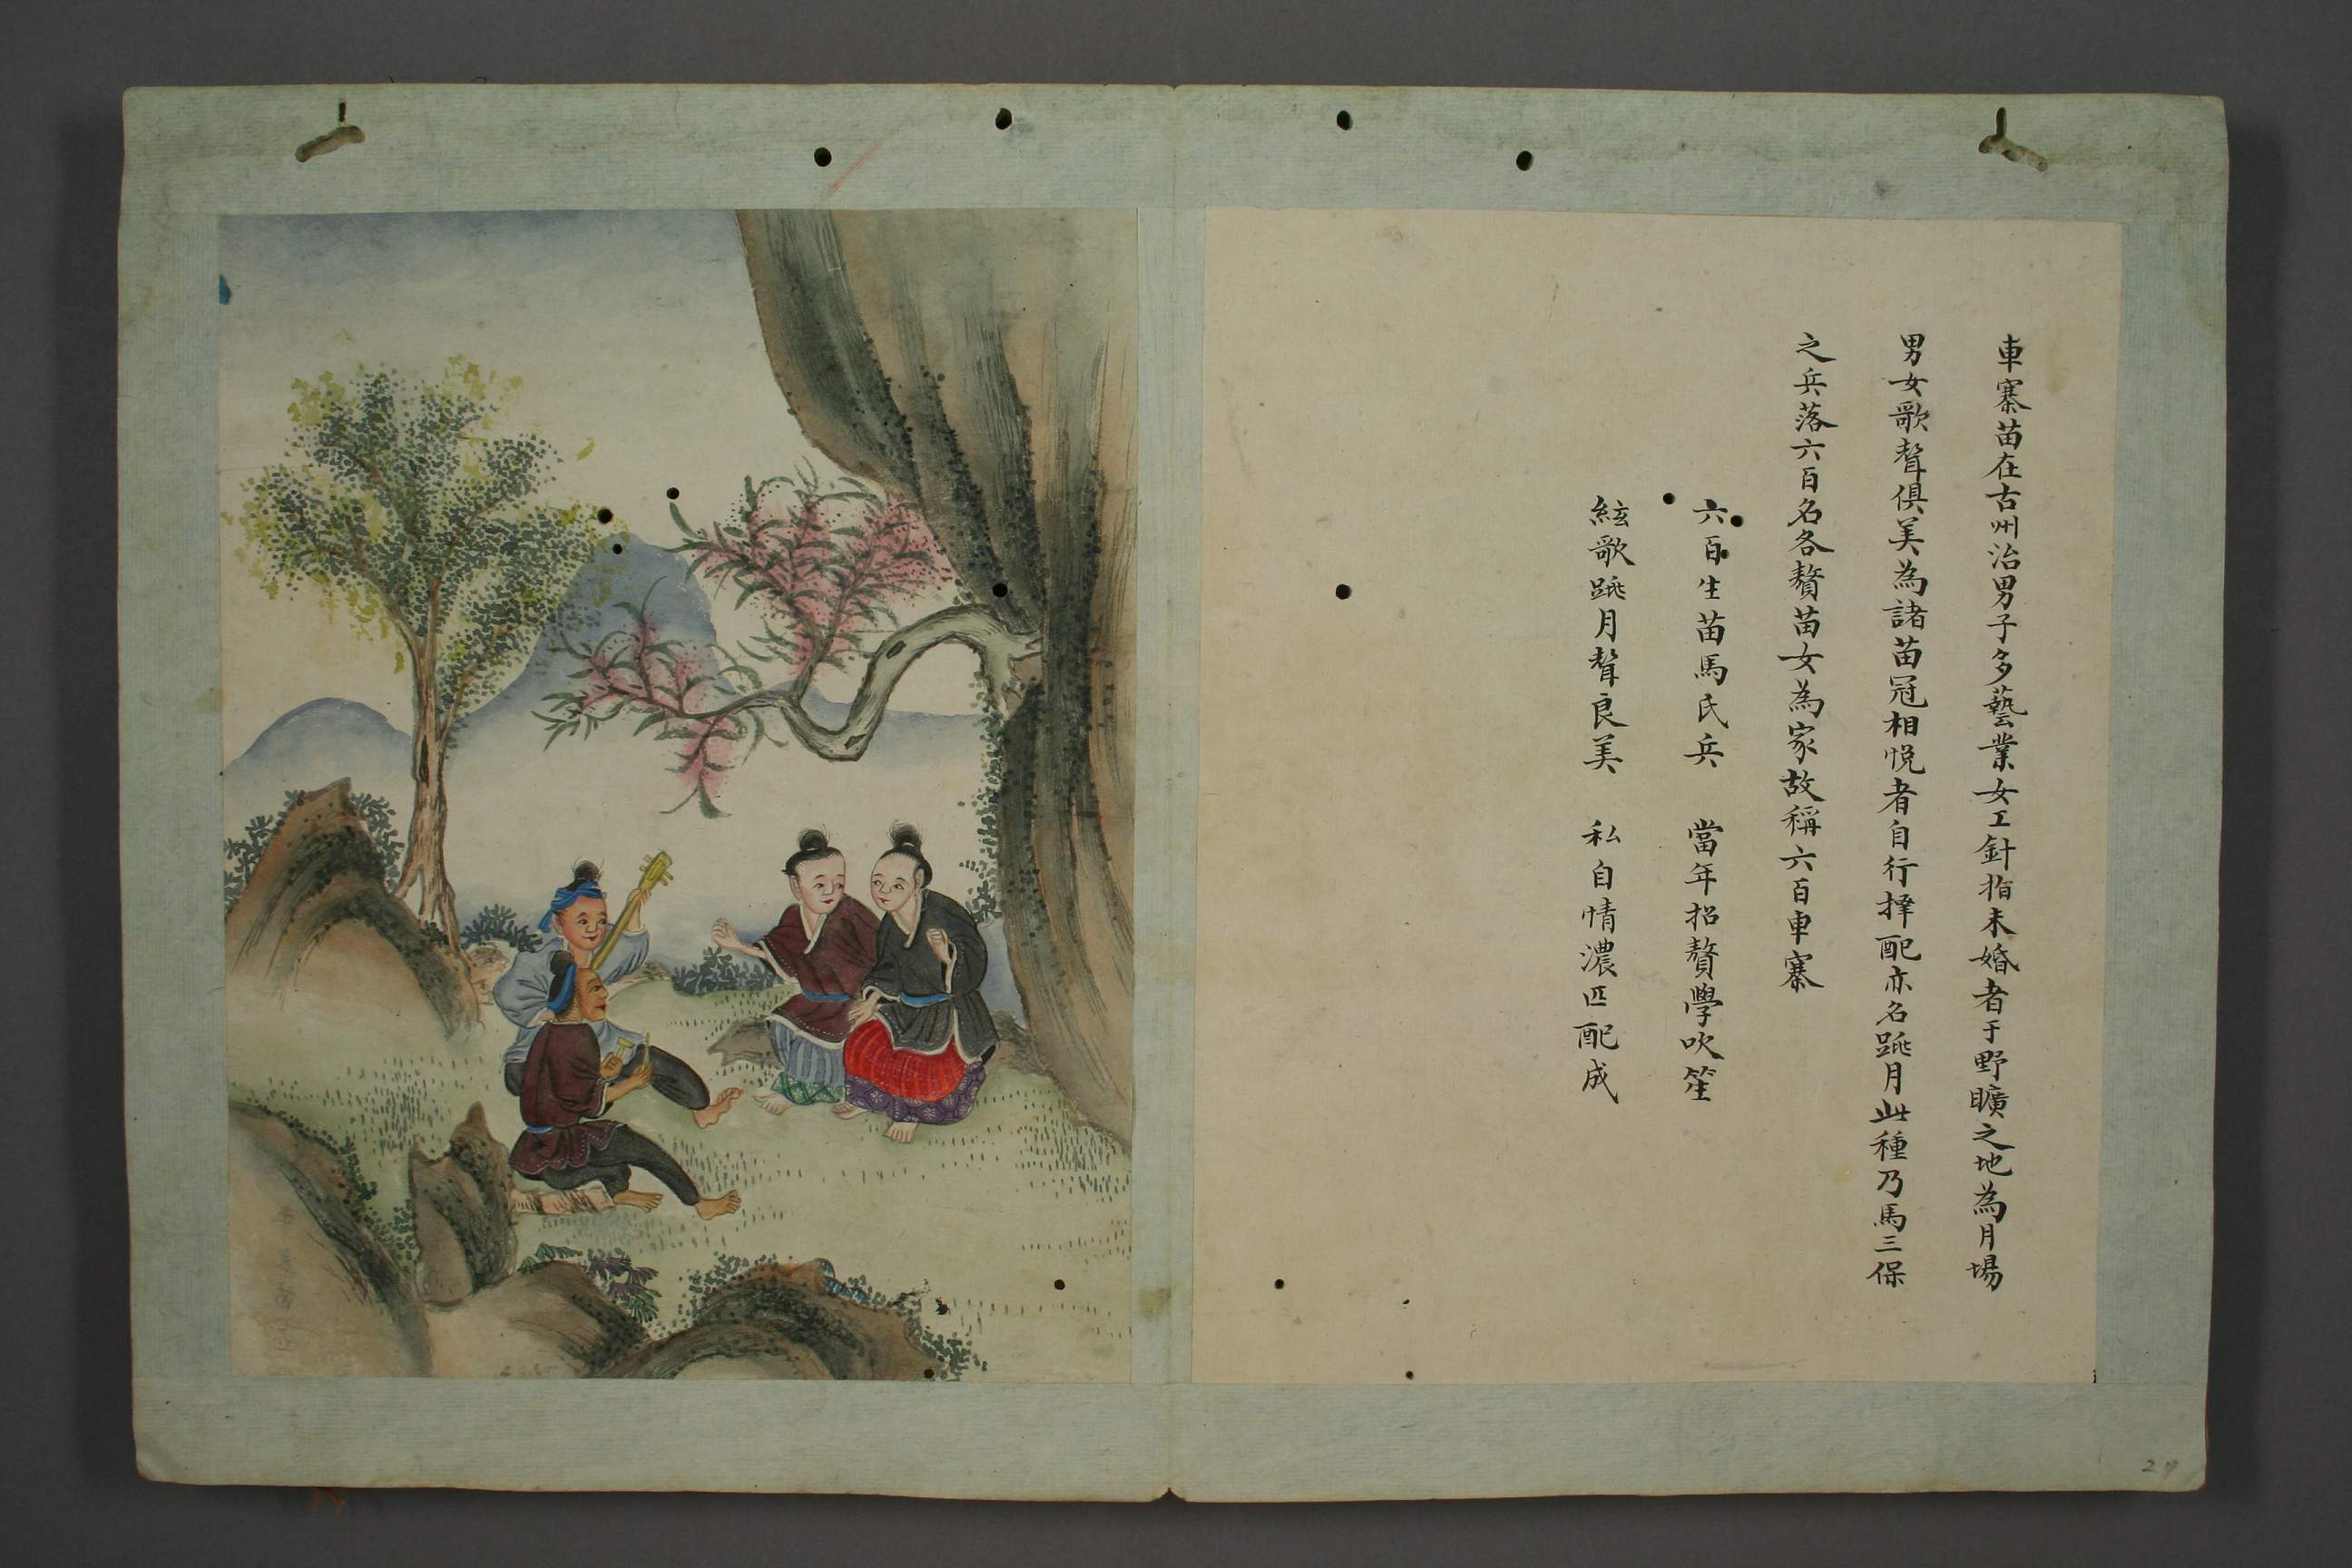 車寨苗在古州治男子多藝業女工針指未婚者于野曠之地為月場
男女歌聲俱美為諸苗冠相悅者自行擇配亦名跳月此種乃馬三保
之兵落六百名各贅苗女為家故稱六百車寨
六百生苗馬氏兵　當年招贅學吹笙
絃歌跳月聲良美　私自情濃匹配成
27